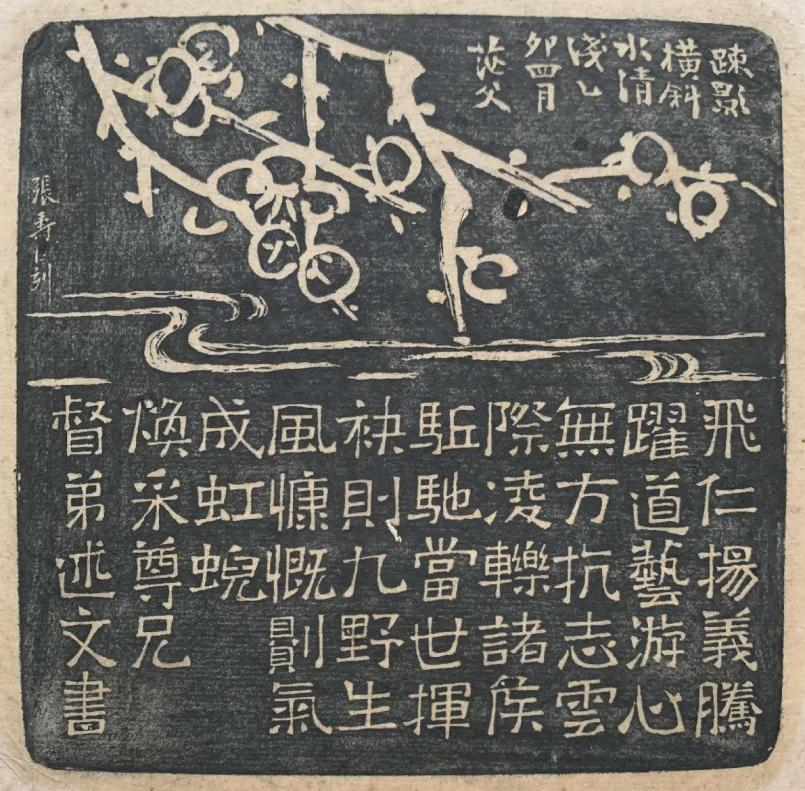 疎影
橫斜
水清
淺乙
卯四月
茫父
張壽丞刻
飛仁揚義騰
躍道藝游心
無方抗志雲
際淩轢諸侯
駈馳當世揮
袂則九野生
風慷慨則氣
成虹蜺
煥采尊兄
督弟述文書